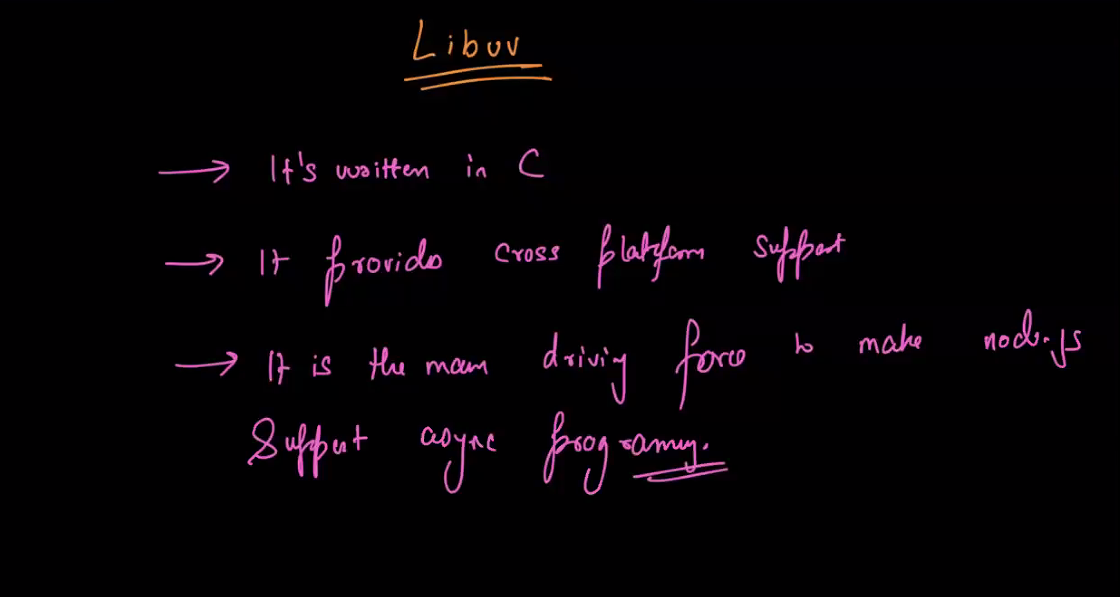 Libuv
→ It's written in C
→ It provides cross platform support
→ It is the main driving force to make node.js
Support async programing.